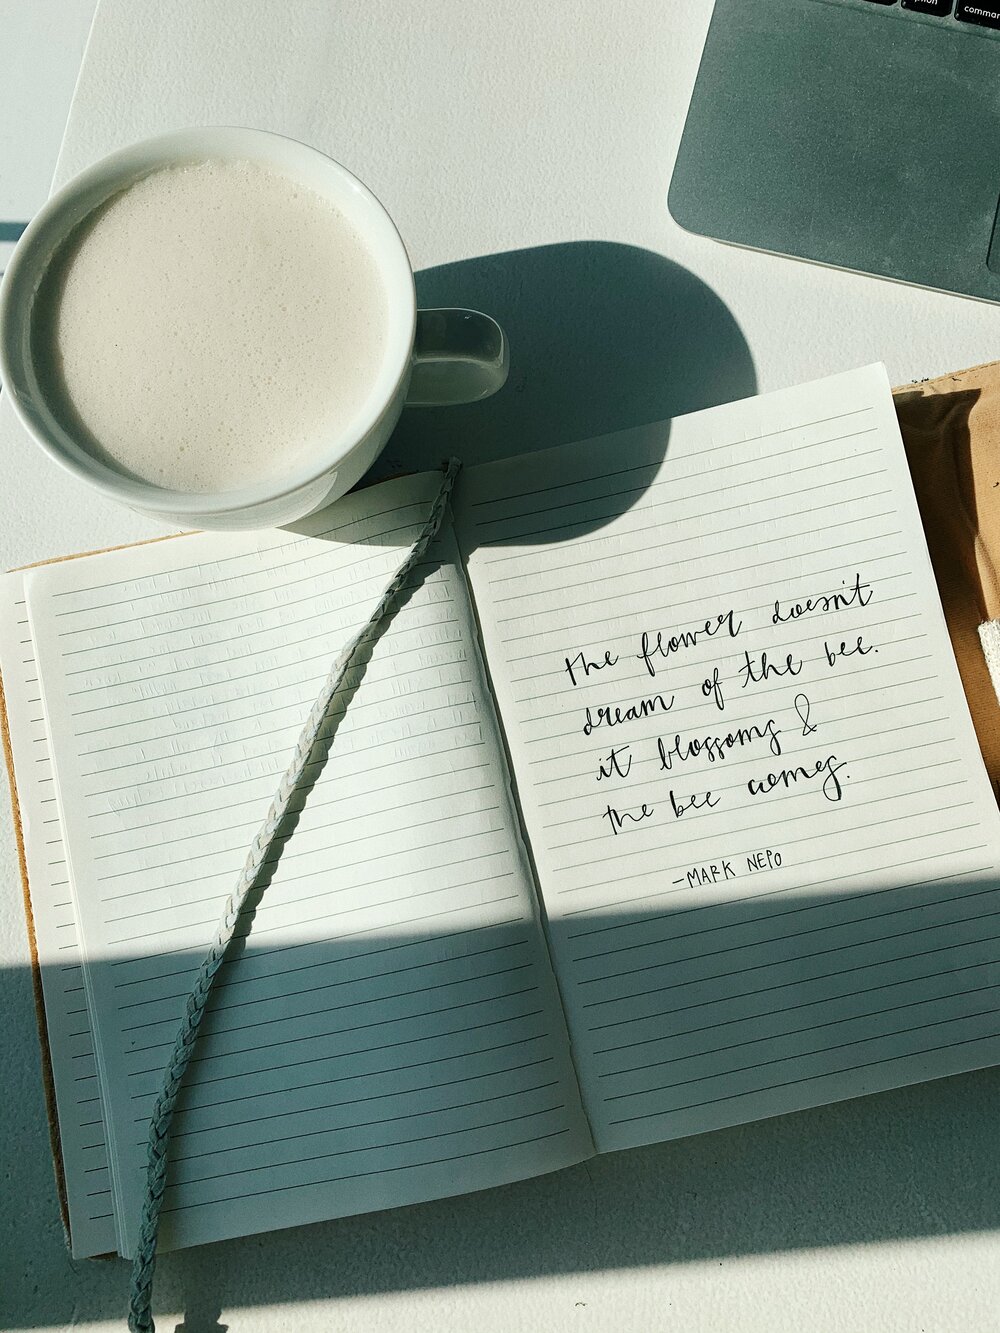 ption
comman
the flower doesn't
dream of the bee.
it blossoms &
the bee comes.
-MARK NEPO